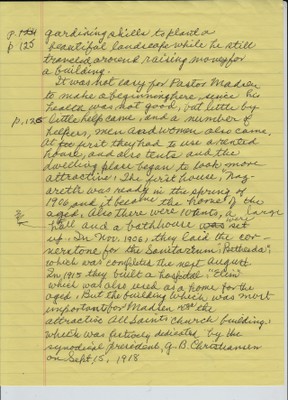 p. 124 gardining skills to plant a
p 125 beautiful landscape while he still
traveled around raising money for
a building.
It was not easy for Pastor Madsen
to make a beginning here, since his
health was not good, but little by
p. 125 little help came, and a number of
helpers, men and women also came.
At first they had to use a rented
house, and also tents and the
dwelling place began to look more
attractive. The first house, Naz-
areth was ready in the spring of
1906 and it became the home of the
aged, Also there were 10 tents, a large
hall and a bathhouse was set
were
up. In Nov. 1906, they laid the cor-
nerstone for the Sanatarium "Bethesda",
which was completed the next August.
In 1915 they built a hospital "Elim"
which was also used as a home for the
aged. But the building which was most
important for Madsen was the
attractive All Saints church building,
which was festively dedicated by the
synodical president, G. B. Christiansen
on Sept 15, 1918